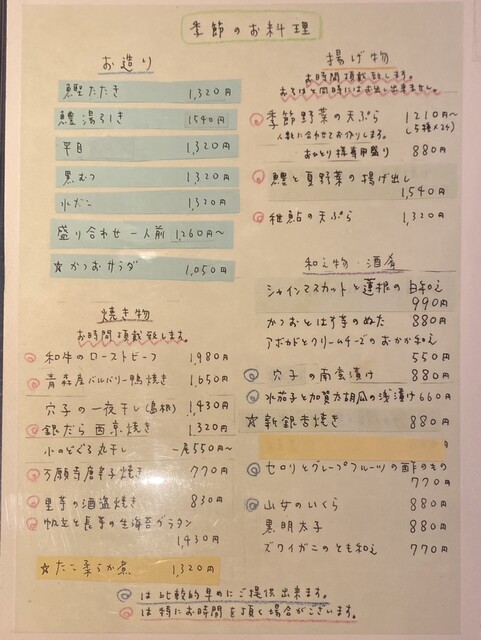 季節のお料理
お造り
鰹たたき 1,320円
鱧湯引き 1540円
平目 1,320円
黒むつ 1,320円
水だこ 1,320円
盛り合わせ 一人前 1,260円〜
☆かつおサラダ 1,050円
焼き物
お時間頂戴致します。
和牛のローストビーフ 1,980円
青森産バルバリー鴨焼き 1,650円
穴子の一夜干し(島根) 1,430円
銀だら西京焼き 1,320円
小のどぐろ丸干し 一尾550円〜
万願寺唐辛子焼き 770円
里芋の酒盗焼き 830円
帆立と長芋の生海苔グラタン
1,430円
☆たこ柔らか煮 1,320円
揚げ物
お時間頂戴致します。
おそばと同時にはお出し出来ません。
季節野菜の天ぷら 1210円〜
人数に合わせてお作りします。 (5種×2ケ)
おひとり様専用盛り 880円
鱧と夏野菜の揚げ出し
1,540円
稚鮎の天ぷら 1,320円
和え物・酒肴
シャインマスカットと蓮根の白和え
990円
かつおとはす芋のぬた 880円
アボカドとクリームチーズのおかか和え
550円
穴子の南蛮漬け 880円
水茄子と加賀太胡瓜の浅漬け 660円
☆新銀杏焼き 880円
セロリとグレープフルーツの酢のもの
770円
山女のいくら 880円
黒明太子 880円
ズワイガニのとも和え 770円
は比較的早めにご提供出来ます。
は特にお時間を頂く場合がございます。